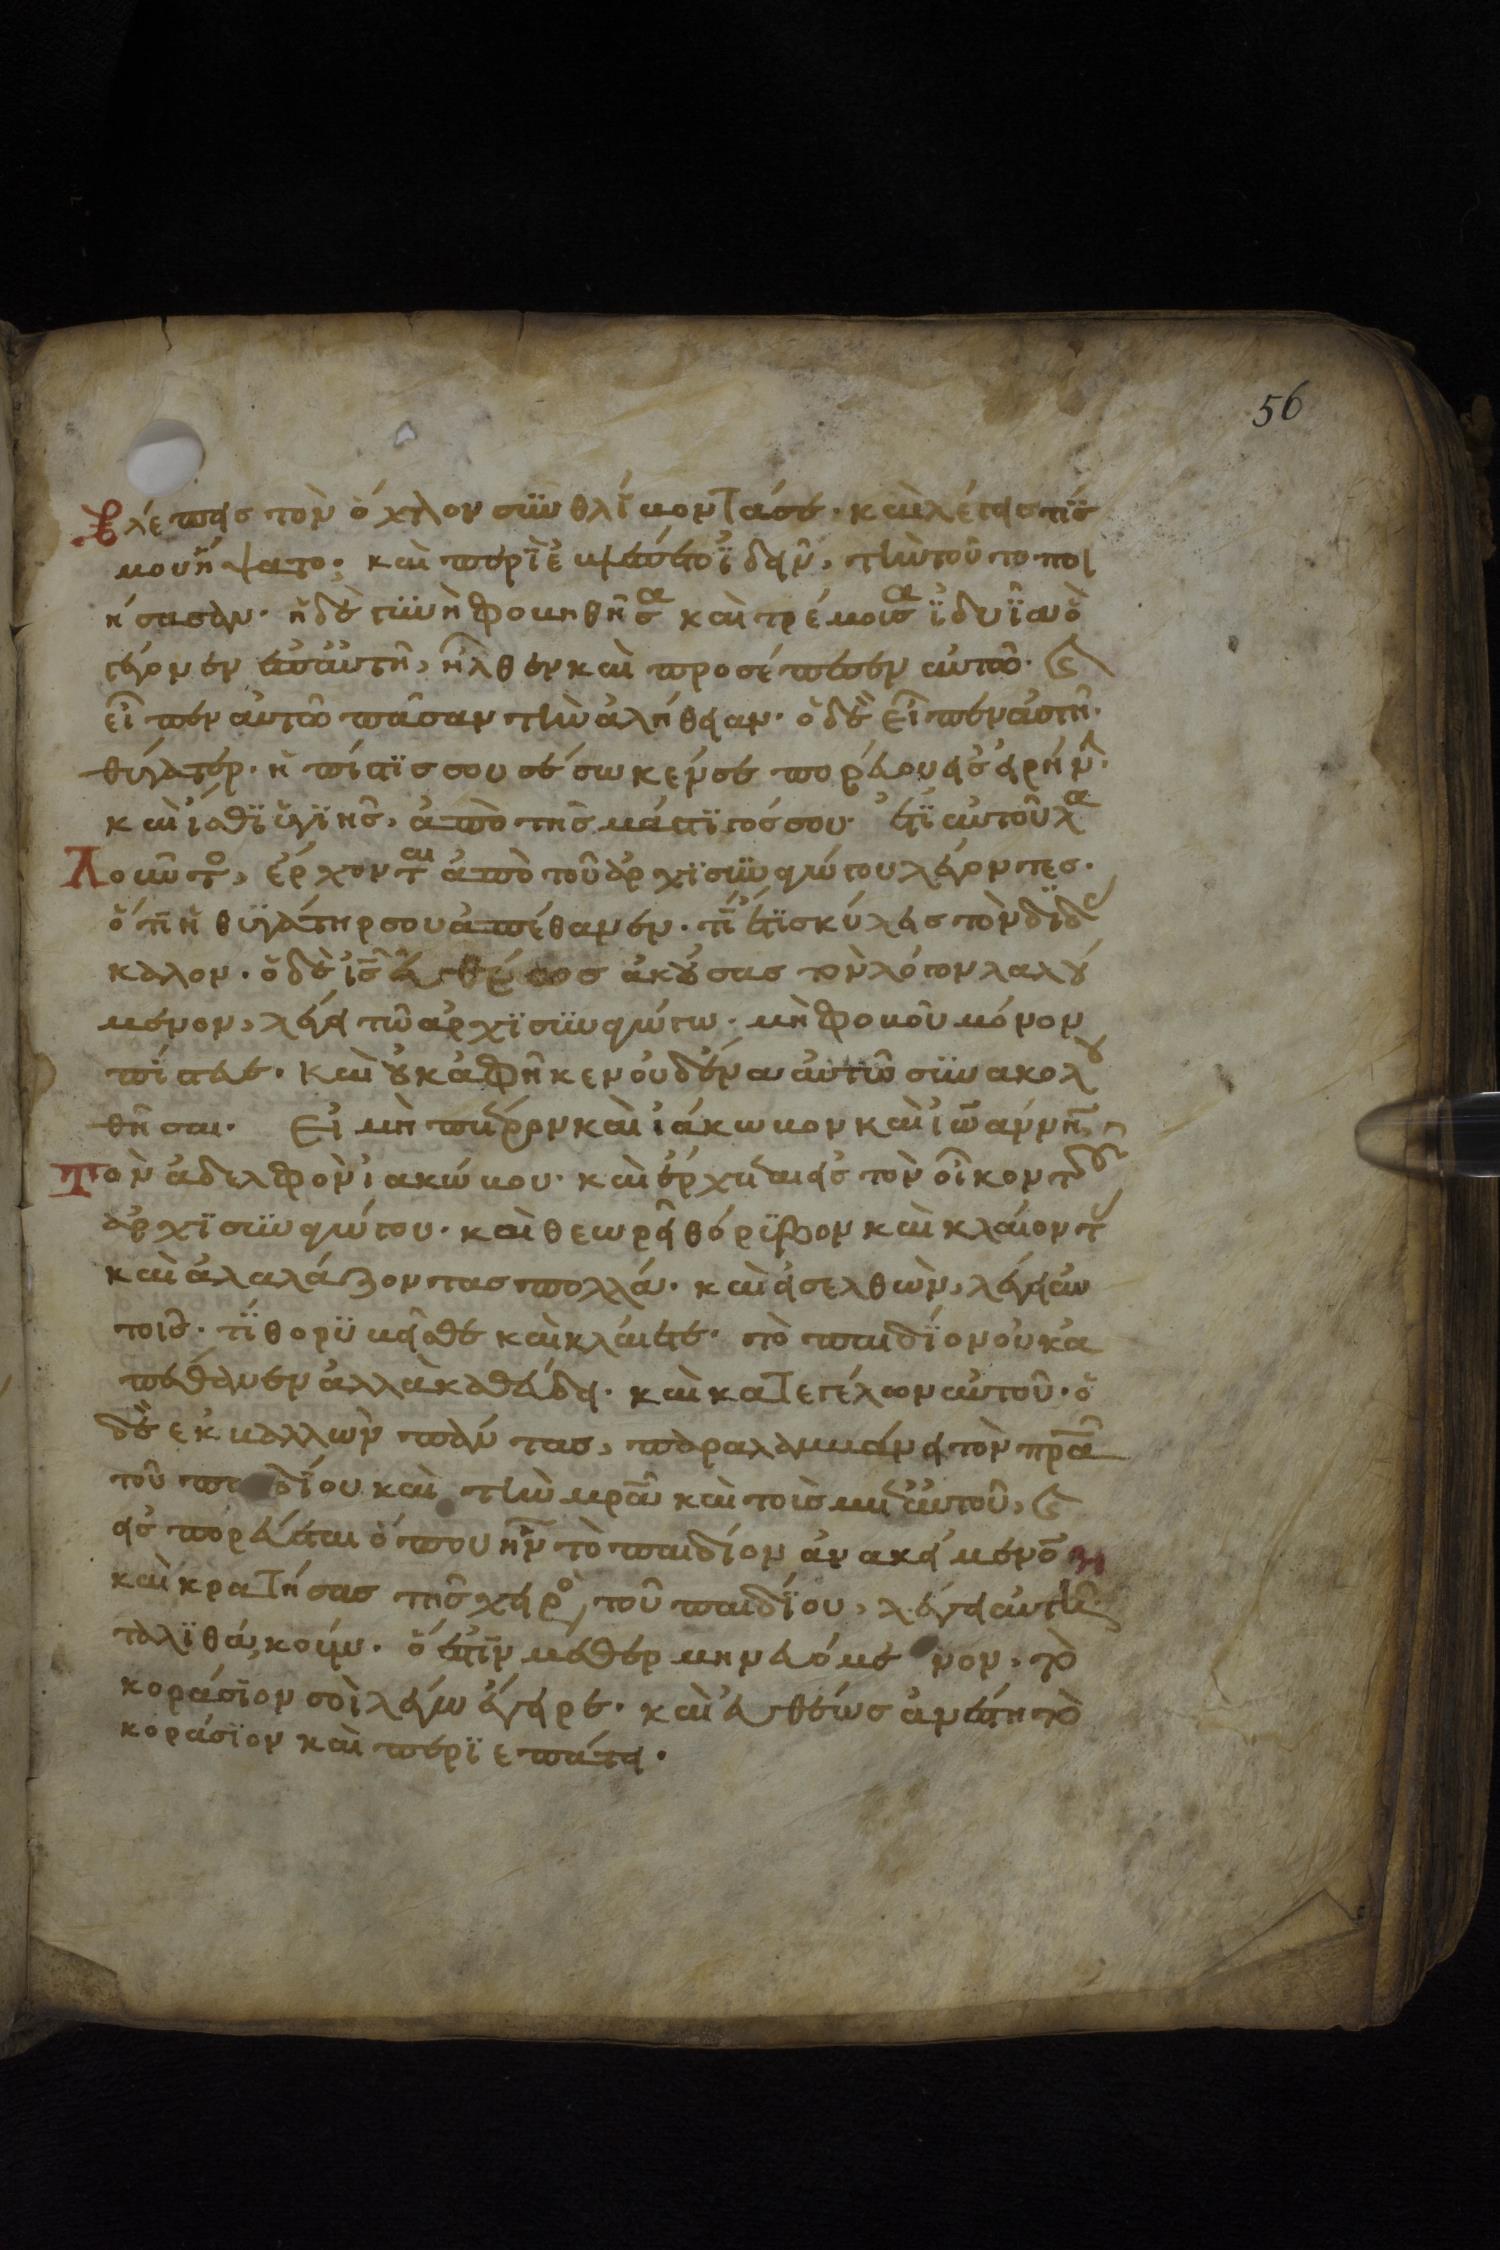 56
βλέπεις τὸν ὄχλον συνθλίβοντά σε· καὶ λέγεις τίς
μου ἥψατο; καὶ περϊἐβλέπετο ϊδεῖν, τὴν τοῦτο ποι
ήσασαν· ἡ δὲ γϋνὴ φοβηθεῖσα καὶ τρέμουσα ϊδυῖα ὃ
γέγονεν ἐπ' αὐτῆ, ἦλθεν καὶ προσέπεσεν αὐτῶ· καὶ
εἶπεν αὐτῶ πᾶσαν τὴν ἀλήθειαν· ὁ δὲ εἶπεν αὐτῆ·
θύγατερ· ἡ πίστϊς σου σέσωκέν σε πορεύου εἰς εἰρήνην·
καὶ ἴσθϊ ὑγϊὴς, ἀπὸ τῆς μάστϊγός σου· ἔτϊ αὐτοῦ λα
λοῦντο, ἔρχονται ἀπὸ τοῦ ἀρχϊσϋναγώγου λέγοντες·
ὅτι ἡ θϋγάτηρ σου ἀπέθανεν· τί ἔτϊ σκύλεις τὸν δϊδά
καλον· ὁ δὲ ις εὐθέως ἀκούσας τὸν λόγον λαλού
μενον, λέγει τῶ ἀρχϊσϋναγώγω· μὴ φοβοῦ μόνον
πίστευε· καὶ οὐκ ἀφῆκεν οὐδένα αὐτῶ σϋνακολου
θῆσαι· Εἰ μὴ πέτρον καὶ ἰάκωβον καὶ ἰωάννην
τὸν ἀδελφὸν ἰακώβου· καὶ ἔρχεται εἰς τὸν οἶκον τοῦ
ἀρχϊσϋναγώγου· καὶ θεωρεῖ θόρϋβον καὶ κλαίοντ
καὶ ἀλαλάζοντας πολλά· καὶ εἰσελθὼν, λέγει αὐ
τοῖς· τί θορϋβεῖσθε καὶ κλαίετε· τὸ παιδϊον οὐκ ἀ
πέθανεν ἀλλὰ καθεύδει· καὶ κατεγέλων αὐτοῦ· ὁ
δὲ ἐκβαλλὼν πάντας, παραλαμβάνει τὸν πρα
τοῦ παιδϊου καὶ τὴν μρα καὶ τοὺς μετ' αὐτοῦ, καὶ
εἰσπορεύεται ὅπου ἦν τὸ παιδίον ἀνακείμενον
καὶ κρατήσας τῆς χειρὸ τοῦ παιδϊου, λέγει αὐτῆ
ταλϊθά, κούμ· ὅ ἐστϊν μεθερμηνευόμενον, τὸ
κοράσϊον σοὶ λέγω ἔγειρε· καὶ εὐθέως ἀνέστη τὸ
κοράσϊον καὶ περϊεπάτει·